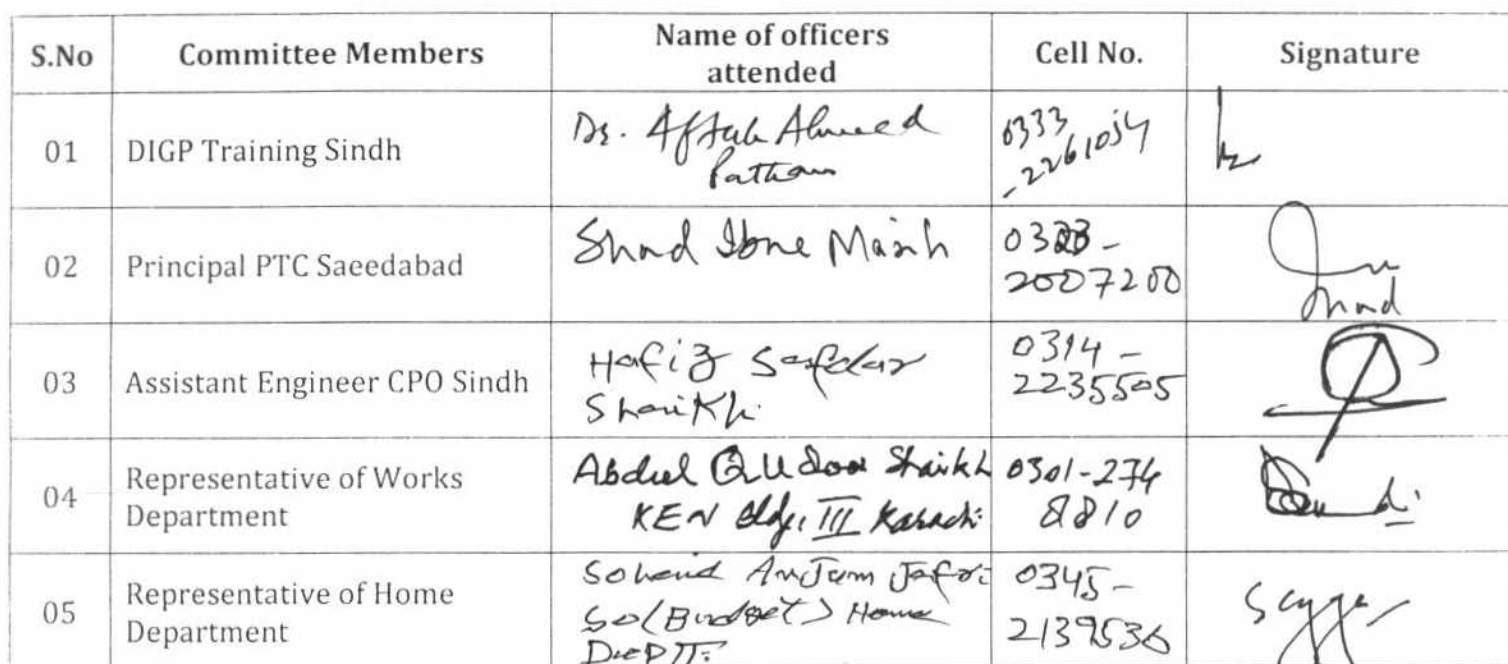 S.No Committee Members Name of officers attended Cell No. Signature
01 DIGP Training Sindh Dr. Aftab Ahmed Pathan 0333-2261054
02 Principal PTC Saeedabad Shad Ibne Masih 0323-2007200
03 Assistant Engineer CPO Sindh Hafiz Safdar Shaikh 0314-2235505
04 Representative of Works Department Abdul Qudoos Shaikh KEN Bldg. III Karachi 0301-274 8810
05 Representative of Home Department Anjum Jafri SO(Budget) Home Deptt: 0345-2139536